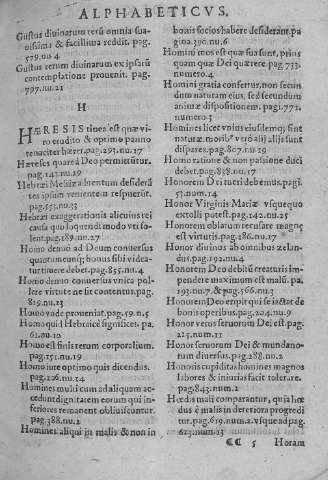 ALPHABETICVS.
Gustus diuinarum rerũ omnia sua-
uissima & facillima reddit. pag.
579.nu.4
Gustus rerum diuinarum ex ipsarũ
contemplatione prouenit. pag.
797.nu.21
H
HÆRESIS tinea est quæ vi-
ro erudito & optimo panno
tenaciter hæret.pag.297.nu.27
Hæreses quare à Deo permittũtur.
pag.143.nu.19
Hebræi Messiæ aduentum desiderã
tes ipsum venientem respuerũt.
pag.555.nu.33
Hebræi exaggerationis alicuius rei
causa quo loquendi modo vti so-
lent.pag.189.nu.27
Homo demo ad Deum conuersus
quotumcunq; bonus sibi videa-
tur timere debet.pag.855.nu.4
Homo demo conuersus vnica pol-
lere virtute ne sit contentus.pag.
819.nu.13
Homo vnde proueniat.pag.59.n.5
Homo quid Hebraicè significet.pa.
61.nu.10
Homo est finis rerum corporalium
pag.151.nu.19
Homo iure optimo quis dicendus.
pag.206.nu.14
Homines multi cum ad aliquam ac-
cedunt dignitatem eorum qui in-
feriores remanent obliuiscuntur.
pag.388.nu.2
Homines aliqui in malis & non in
bonis socios habere desiderant.pa
gina.390.nu.6
Homini mos est quæ sua sunt, prius
quam quæ Dei quærere.pag.733.
numero.4
Homini gratia confertur, non secun
dum naturam eius, sed secundum
animæ dispositionem.pag.773.
numero.3
Homines licet vnius eiusdemq; sint
naturæ, morib⁹ verò alij alijs sunt
dispares.pag.807.nu.19
Homo ratione & non passione duci
debet.pag.858.nu.17
Honorem Dei tueri debemus.pagi.
57.num.14
Honor Virginis Mariæ vsquequo
extolli potest.pag.142.nu.25
Honorem oblatum recusare magnę
est virtutis.pag.186.nu.17
Honor diuinus ab omnibus zelan-
dus.pag.192.nu.4
Honorem Deo debitũ creaturis im-
pendere maximum est malũ. pa.
193.nu.7.& pag.566.nu.3
Honorem Deo eripit qui se iactat de
bonis operibus.pag.204.nu.9
Honor verus seruorum Dei est.pag.
225.num.11
Honor seruorum Dei & mundano-
rum diuersus.pag.288.nu.2
Honoris cupiditas homines magnos
labores & iniurias facit tolerare.
pag.843.num.2
Hœdis mali comparantur, quia hœ
dus è malis in deteriora progredi
tur.pag.619.num.2.vsque ad pag.
623.num.13
CC 5 Horam